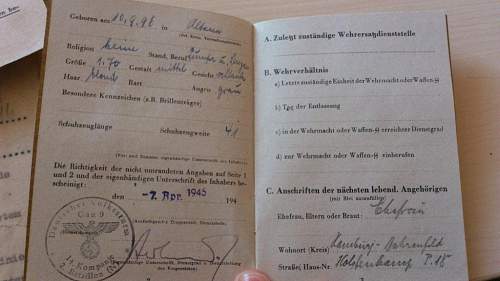 Geboren am: 10.9.96 in Altona
Religion keine Stand, Beruf
Größe 1.70 Gestalt mittel Gesicht
Haar blond Bart Augen grau
Besondere Kennzeichen (z.B. Brillenträger)
Schuhzeuglänge Schuhzeugweite 41
(Vor- und Zuname, eigenhändige Unterschrift des Inhabers)
Die Richtigkeit der nicht umrandeten Angaben auf Seite 1
und 2 und der eigenhändigen Unterschrift des Inhabers be-
scheinigt:
den -7. Apr. 1945 194
Deutscher Volkssturm
Gau 9
14. Kompanie
2. Bataillon
A. Zuletzt zuständige Wehrersatzdienststelle
B. Wehrverhältnis
a) Letzte zuständige Einheit der Wehrmacht oder Waffen-SS
b) Tag der Entlassung
c) in der Wehrmacht oder Waffen-SS erreichter Dienstgrad
d) zur Wehrmacht oder Waffen-SS einberufen
C. Anschriften der nächsten lebend. Angehörigen
(mit Blei auszufüllen)
Ehefrau, Eltern oder Braut: Ehefrau
Wohnort (Kreis) Hamburg-Bahrenfeld
Straße/Haus-Nr. Holstenkamp